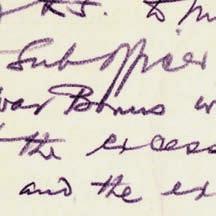 Sub officer
War Bonus
the excess
and the ex